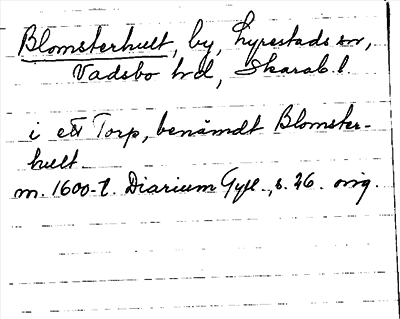 Blomsterhult, by, Lyrestads sn,
Vadsbo hd, Skarab. l.
i ett Torp, benämdt Blomster-
hult
m. 1600-t. Diarium Gyll., s. 26. orig.